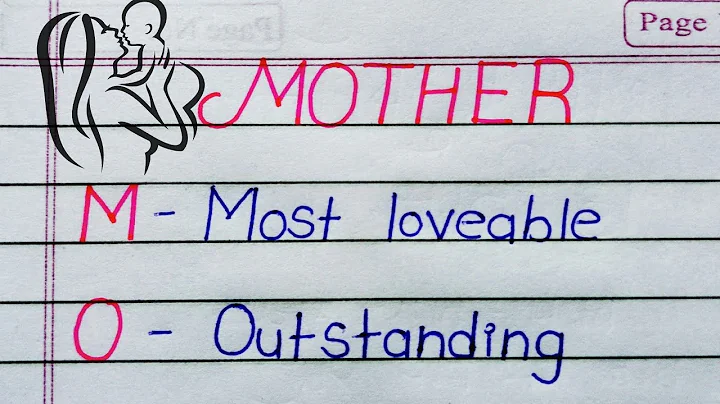 Page
MOTHER
M - Most loveable
O - Outstanding